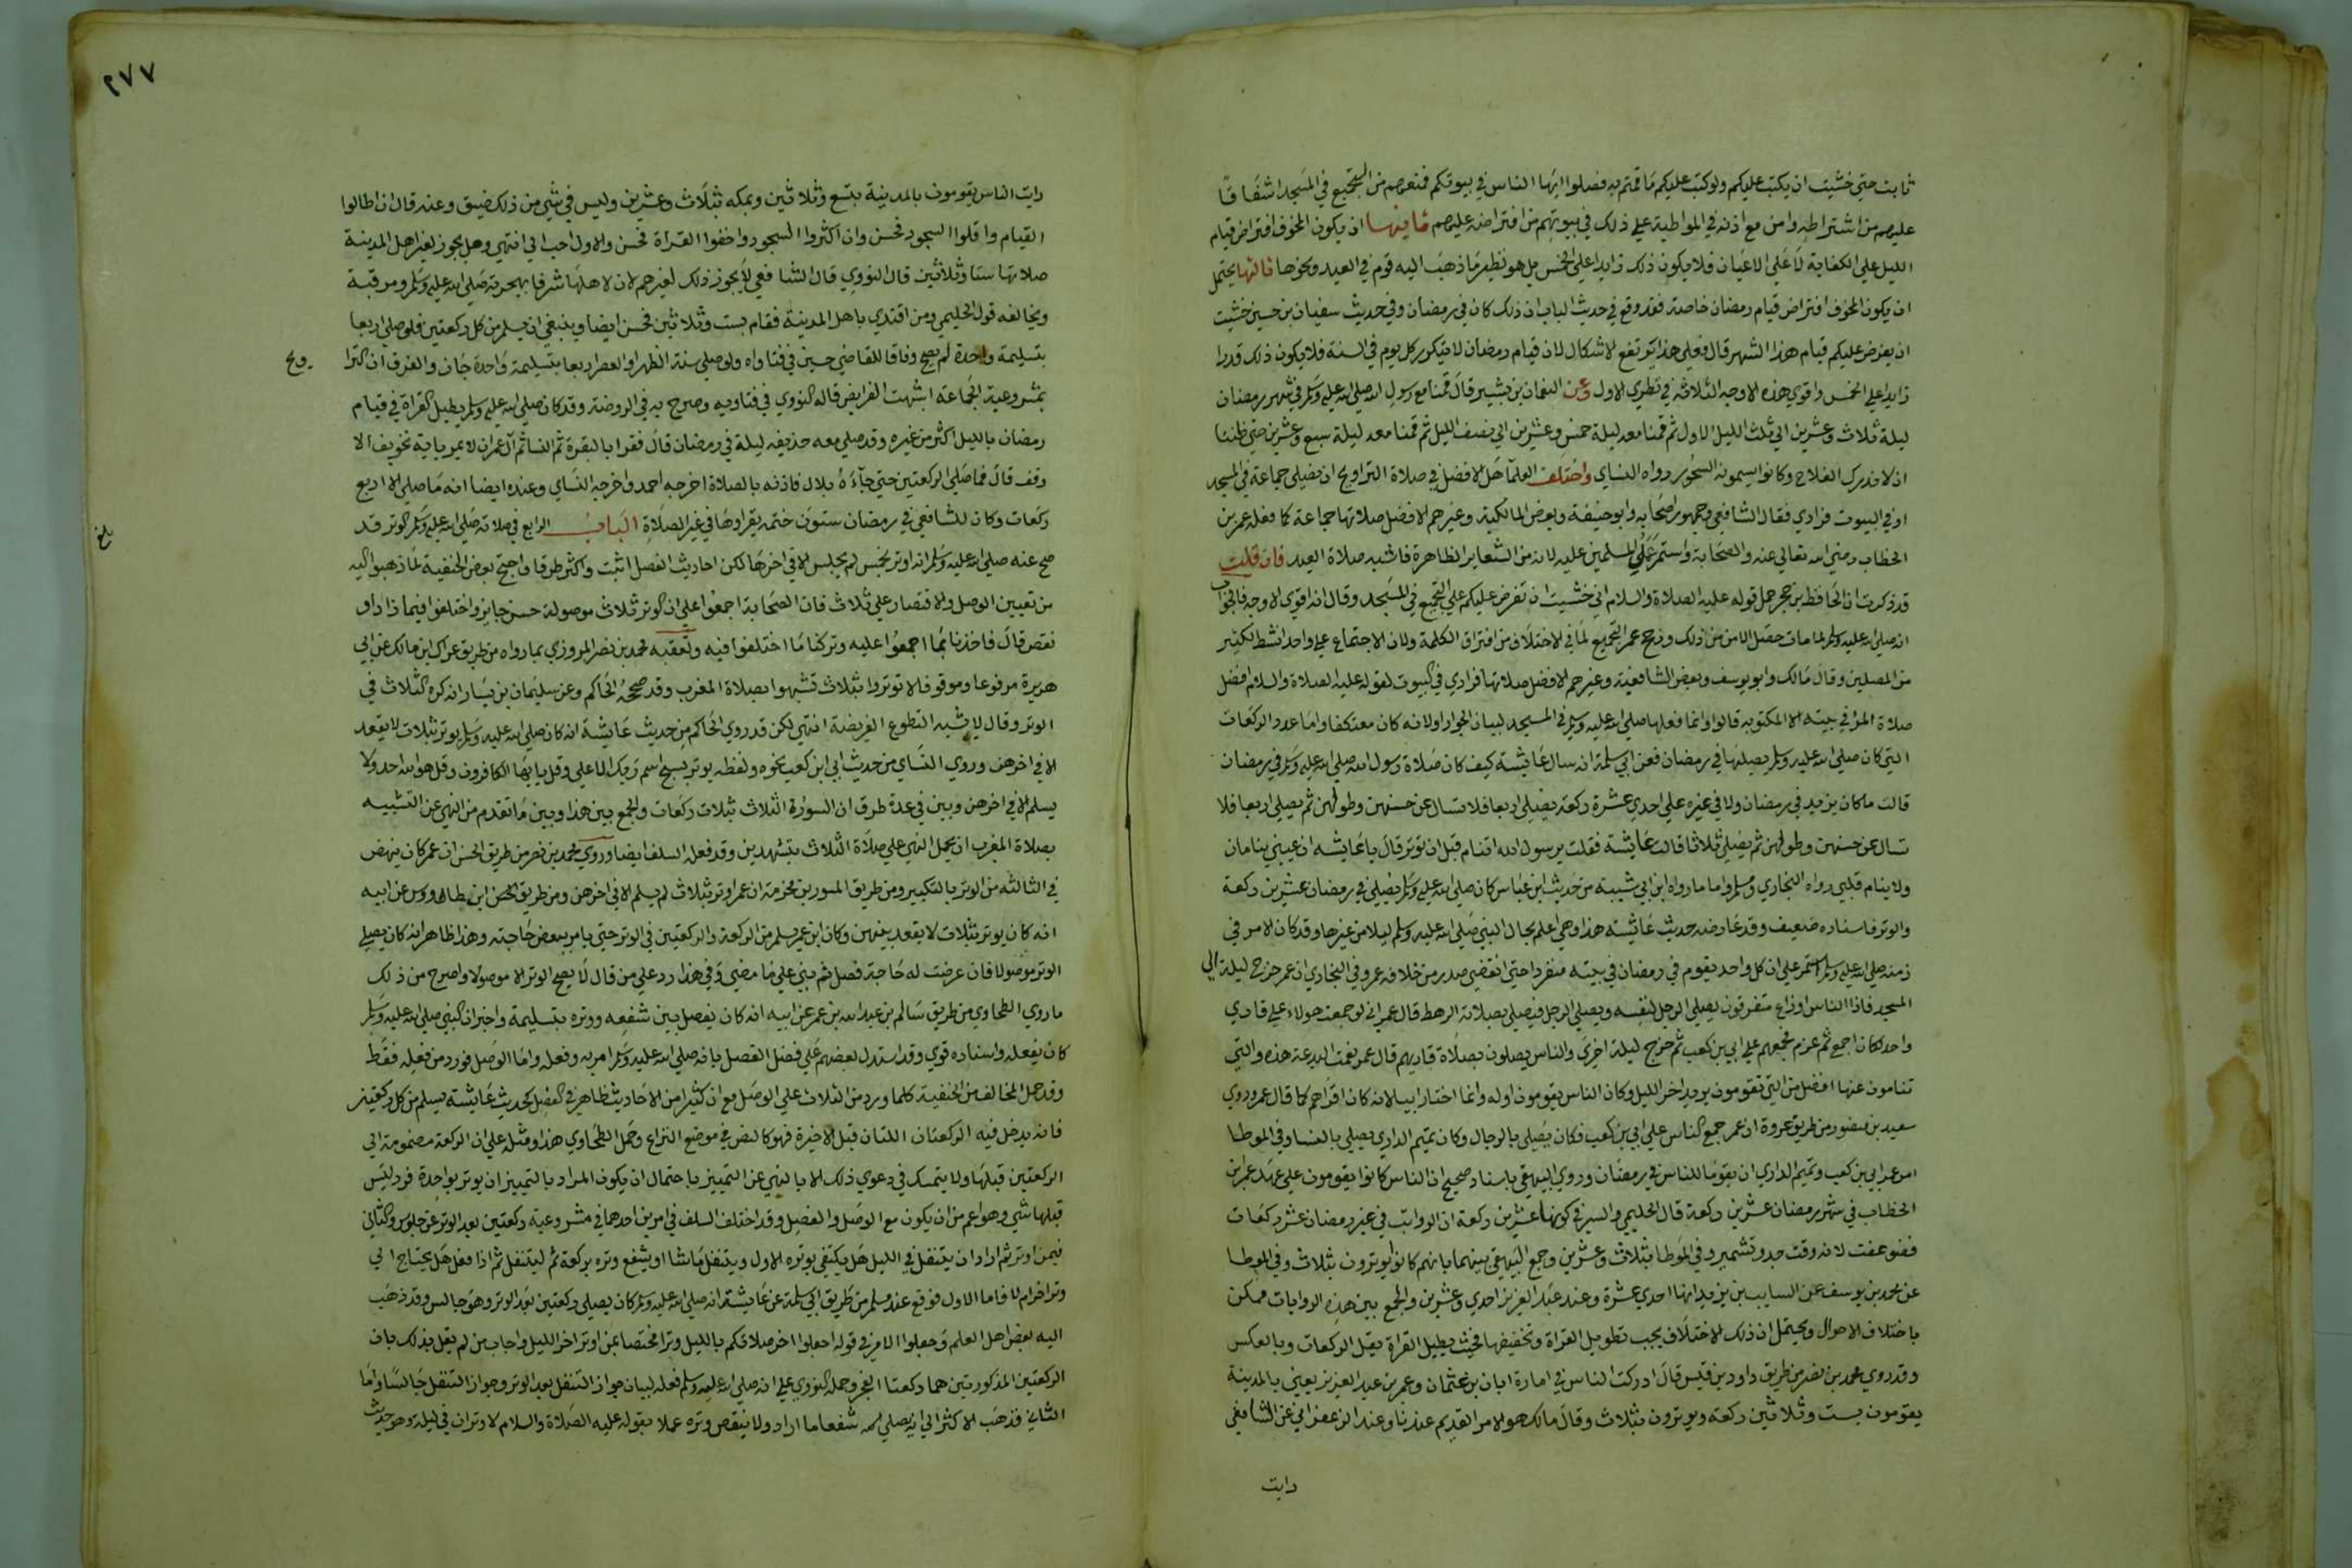 ثابت حتى خشيت ان يكتب عليكم ولو كتب عليكم ما قمتم به فصلوا ايها الناس في بيوتكم فمنعهم من التجميع في المسجد اشفاقا
عليهم من اشتراطه وامن مع اذنه في المواظبة على ذلك في بيوتهم من افتراضه عليهم ثانيها ان يكون المخوف افتراض قيام
الليل على الكفاية لا على الاعيان فلا يكون ذلك زايدا على الخمس بل هو نظير ما ذهب اليه قوم في العيد ونحوها ثالثها يحتمل
ان يكون المخوف افتراض قيام رمضان خاصة فقد وقع في حديث الباب ان ذلك كان في رمضان وفي حديث سفيان بن حسين خشيت
ان يفرض عليكم قيام هذا الشهر قال فعلى هذا يرتفع الاشكال لان قيام رمضان لا يتكرر كل يوم في السنة فلا يكون ذلك قدرا
زايدا على الخمس واقوي هذه الاوجه الثلاثة في نظري الاول وعن النعمان بن بشير قال قمنا مع رسول الله صلى الله عليه وسلم في شهر رمضان
ليلة ثلاث وعشرين الى ثلث الليل الاول ثم قمنا معه ليلة خمس وعشرين الى نصف الليل ثم قمنا معه ليلة سبع وعشرين حتى ظننا
ان لا ندرك الفلاح وكانوا يسمونه السحور رواه النساي واختلف العلما هل الافضل في صلاة التراويح ان تصلى جماعة في المسجد
او في البيوت فرادي فقال الشافعي وجمهور اصحابه وابو حنيفة وبعض المالكية وغيرهم الافضل صلاتها جماعة كما فعله عمر بن
الخطاب رضي الله تعالى عنه والصحابة واستمر على المسلمين عليه لانه من الشعاير الظاهرة فاشبه صلاة العيد فان قلت
قد ذكرت ان الحافظ بن حجر حمل قوله عليه الصلاة والسلام اني خشيت ان تفرض عليكم على التجميع في المسجد وقال انه اقوي الاوجه فالجواب
انه صلى الله عليه وسلم لما مات حصل الامن من ذلك ورجح عمر التجميع لما في الاختلاف من افتراق الكلمة ولان الاجتماع على واحد انشط لكثير
من المصلين وقال مالك وابو يوسف وبعض الشافعية وغيرهم الافضل صلاتها فرادي في البيوت لقوله عليه الصلاة والسلام افضل
صلاة المرء في بيته الا المكتوبة قالوا وانما فعلها صلى الله عليه وسلم في المسجد لبيان الجواز او لانه كان معتكفا واما عدد الركعات
التي كان صلى الله عليه وسلم يصليها في رمضان فعن ابي سلمة انه سال عايشة كيف كان صلاة رسول الله صلى الله عليه وسلم في رمضان
قالت ما كان يزيد في رمضان ولا في غيره على احدي عشرة ركعة يصلي اربعا فلا تسال عن حسنهن وطولهن ثم يصلي اربعا فلا
تسال عن حسنهن وطولهن ثم يصلي ثلاثا قالت عايشة فقلت يرسول الله اتنام قبل ان توتر قال يا عايشه ان عيني ينامان
ولا ينام قلبي رواه البخاري ومسلم واما ما رواه ابن ابي شيبة من حديث ابن عباس كان صلى الله عليه وسلم يصلي في رمضان عشرين ركعة
والوتر فاسناده ضعيف وقد عارضه حديث عايشة هذا وهي اعلم بحال النبي صلى الله عليه وسلم ليلا من غيرها وقد كان الامر في
زمنه صلى الله عليه وسلم استمر على ان كل واحد يقوم في رمضان في بيته منفردا حتى انقضى صدر من خلافة عمر وفي البخاري ان عمر خرج ليلة الى
المسجد فاذا الناس اوزاع متفرقون يصلي الرجل لنفسه ويصلي الرجل فيصلي بصلاته الرهط فقال عمر اني لو جمعت هولاء على قاري
واحد لكان اجمع ثم عزم فجمعهم على ابي بن كعب ثم خرج ليلة اخرى والناس يصلون بصلاة قاريهم قال عمر نعمت البدعة هذه والتي
تنامون عنها افضل من التي تقومون يريد اخر الليل وكان الناس يقومون اوله وانما اختار ابيا لانه كان اقراهم كما قال عمر وروي
سعيد بن منصور من طريق عروة ان عمر جمع الناس على ابي بن كعب فكان يصلي بالرجال وكان تميم الداري يصلي بالنسا وفي الموطا
امر عمر ابي بن كعب وتميم الداري ان يقوما للناس في رمضان وروي البيهقي باسناد صحيح ان الناس كانوا يقومون على عهد عمر بن
الخطاب في شهر رمضان عشرين ركعة قال الحليمي والسر في كونها عشرين ركعة ان الرواتب في غير رمضان عشر ركعات
فضوعفت لانه وقت جد وتشمير وفي الموطا بثلاث وعشرين وجمع البيهقي بينهما بانهم كانوا يوترون بثلاث وفي الموطا
عن محمد بن يوسف عن السايب بن يزيد انها احدي عشرة وعند عبد العزيز احدي وعشرين والجمع بين هذه الروايات ممكن
باختلاف الاحوال ويحتمل ان ذلك الاختلاف بحسب تطويل القراة وتخفيفها فحيث يطيل القراة يقل الركعات وبالعكس
وقد روي محمد بن نصر من طريق داود بن قيس قال ادركت الناس في امارة ابان بن عثمان وعمر بن عبد العزيز يعني بالمدينة
يقومون بست وثلاثين ركعة ويوترون بثلاث وقال مالك هو الامر القديم عندنا وعند الزعفراني عن الشافعي
رايت
٢٧٧
رايت الناس يقومون بالمدينة بتسع وثلاثين وبمكه بثلاث وعشرين وليس في شي من ذلك ضيق وعنه قال ان اطالوا
القيام واقلوا السجود فحسن وان اكثروا السجود واخفوا القراة فحسن والاول احب الي انتهى وهل يجوز لغير اهل المدينة
صلاتها ستا وثلاثين قال النووي قال الشافعي لا يجوز ذلك لغيرهم لان لاهلها شرفا بهجرته صلى الله عليه وسلم ومرقبة
ويخالفه قول الحليمي ومن اقتدي باهل المدينة فقام بست وثلاثين فحسن ايضا وينبغي ان يسلم من كل ركعتين فلو صلى اربعا
بتسليمة واحدة لم يصح وفاقا للقاضي حسين في فتاواه ولو صلى سنة الظهر او العصر اربعا بتسليمة واحدة جاز والفرق ان الترا
ويح
بمشروعية الجماعة اشبهت الفرايض قاله النووي في فتاويه وصرح به في الروضة وقد كان صلى الله عليه وسلم يطيل القراة في قيام
رمضان بالليل اكثر من غيره وقد صلى معه حذيفه ليلة في رمضان قال فقرا بالبقرة ثم النسا ثم آل عمران لا يمر باية تخويف الا
وقف قال فما صلى الركعتين حتى جآءه بلال فاذنه بالصلاة اخرجه احمد واخرجه النساي وعنده ايضا انه ما صلى الا اربع
ركعات وكان للشافعي في رمضان ستون ختمه يقراوها في غير الصلاة الباب الرابع في صلاته صلى الله عليه وسلم الوتر قد
بلغ
صح عنه صلى الله عليه وسلم انه اوتر بخمس لم يجلس الا في اخرها لكن احاديث الفصل اثبت واكثر طرقا واحتج بعض الحنفية لما ذهبوا اليه
من تعيين الوصل والاقتصار على ثلاث فان الصحابة اجمعوا على ان الوتر ثلاث موصولة حسن جايز واختلفوا فيما زاد او
نقص قال فاخذنا بما اجمعوا عليه وتركنا ما اختلفوا فيه وتعقبه محمد بن نصر المروزي بما رواه من طريق عراك بن مالك عن ابي
هريرة مرفوعا وموقوفا لا توتروا بثلاث تشبهوا بصلاة المغرب وقد صححه الحاكم وعن سليمان بن يسار انه كره الثلاث في
الوتر وقال لا يشبه التطوع الفريضة انتهى لكن قد روي الحاكم من حديث عايشة انه كان صلى الله عليه وسلم يوتر بثلاث لا يقعد
الا في اخرهن وروي النساي من حديث ابي ابن كعب نحوه ولفظه يوتر بسبح اسم ربك الاعلى وقل يا ايها الكافرون وقل هو الله احد ولا
يسلم الا في اخرهن وبين في عدة طرق ان السور الثلاث بثلاث ركعات والجمع بين هذا وبين ما تقدم من النهي عن التشبيه
بصلاة المغرب ان يحمل النهي على صلاة الثلاث بتشهدين وقد فعله السلف ايضا وروي محمد بن نصر من طريق الحسن ان عمر كان ينهض
في الثالثه من الوتر بالتكبير ومن طريق المسور بن مخرمة ان عمر اوتر بثلاث لم يسلم الا في اخرهن ومن طريق ابن طاووس عن ابيه
انه كان يوتر بثلاث لا يقعد بينهن وكان ابن عمر يسلم من الركعة والركعتين في الوتر حتى يامر ببعض حاجته وهذا ظاهر انه كان يصلي
الوتر موصولا فان عرضت له حاجة فصل ثم بني على ما مضي وفي هذا رد على من قال لا يصح الوتر الا موصولا واصرح من ذلك
ما روي الطحاوي من طريق سالم بن عبد الله بن عمر عن ابيه انه كان يفصل بين شفعه ووتره بتسليمة واخبر ان النبي صلى الله عليه وسلم
كان يفعله واسناده قوي وقد استدل بعضهم على فضل الفصل بانه صلى الله عليه وسلم امر به وفعله واما الوصل فورد من فعله فقط
وقد حمل المخالف من الحنفية كلما ورد من الثلاث على الوصل مع ان كثيرا من الاحاديث ظاهر في الفصل كحديث عايشة يسلم من كل ركعتين
فانه يدخل فيه الركعتان اللتان قبل الاخيرة فهو كالنص في موضع النزاع وحمل الطحاوي هذا ومثله على ان الركعة مضمومة الى
الركعتين قبلها ولا يتمسك في دعوي ذلك الا بالنهي عن التمييز باحتمال ان يكون المراد بالتمييز ان يوتر بواحدة فرد ليس
قبلها شي وهو اعم من ان يكون مع الوصل والفصل وقد اختلف السلف في امرين احدهما في مشروعية ركعتين بعد الوتر عن جلوس والثاني
فيمن اوتر ثم اراد ان يتنفل في الليل هل يكتفي بوتره الاول ويتنفل ما شا او يشفع وتره بركعة ثم ليتنفل ثم اذا فعل هل يحتاج الى
وتر اخر ام لا فاما الاول فوقع عند مسلم من طريق ابي سلمة عن عايشة انه صلى الله عليه وسلم كان يصلي ركعتين بعد الوتر وهو جالس وقد ذهب
اليه بعض اهل العلم وجعلوا الامر في قوله اجعلوا اخر صلاتكم بالليل وترا مختصا بمن اوتر اخر الليل واجاب من لم يقل بذلك بان
الركعتين المذكورتين هما ركعتا الفجر وحمله النووي على انه صلى الله عليه وسلم فعله لبيان جواز التنفل بعد الوتر وجواز التنفل جالسا واما
الثاني فذهب الاكثر الى انه يصلي شفعا ما اراد ولا ينقص وتره عملا بقوله عليه الصلاة والسلام لا وتران في ليلة وهو حديث